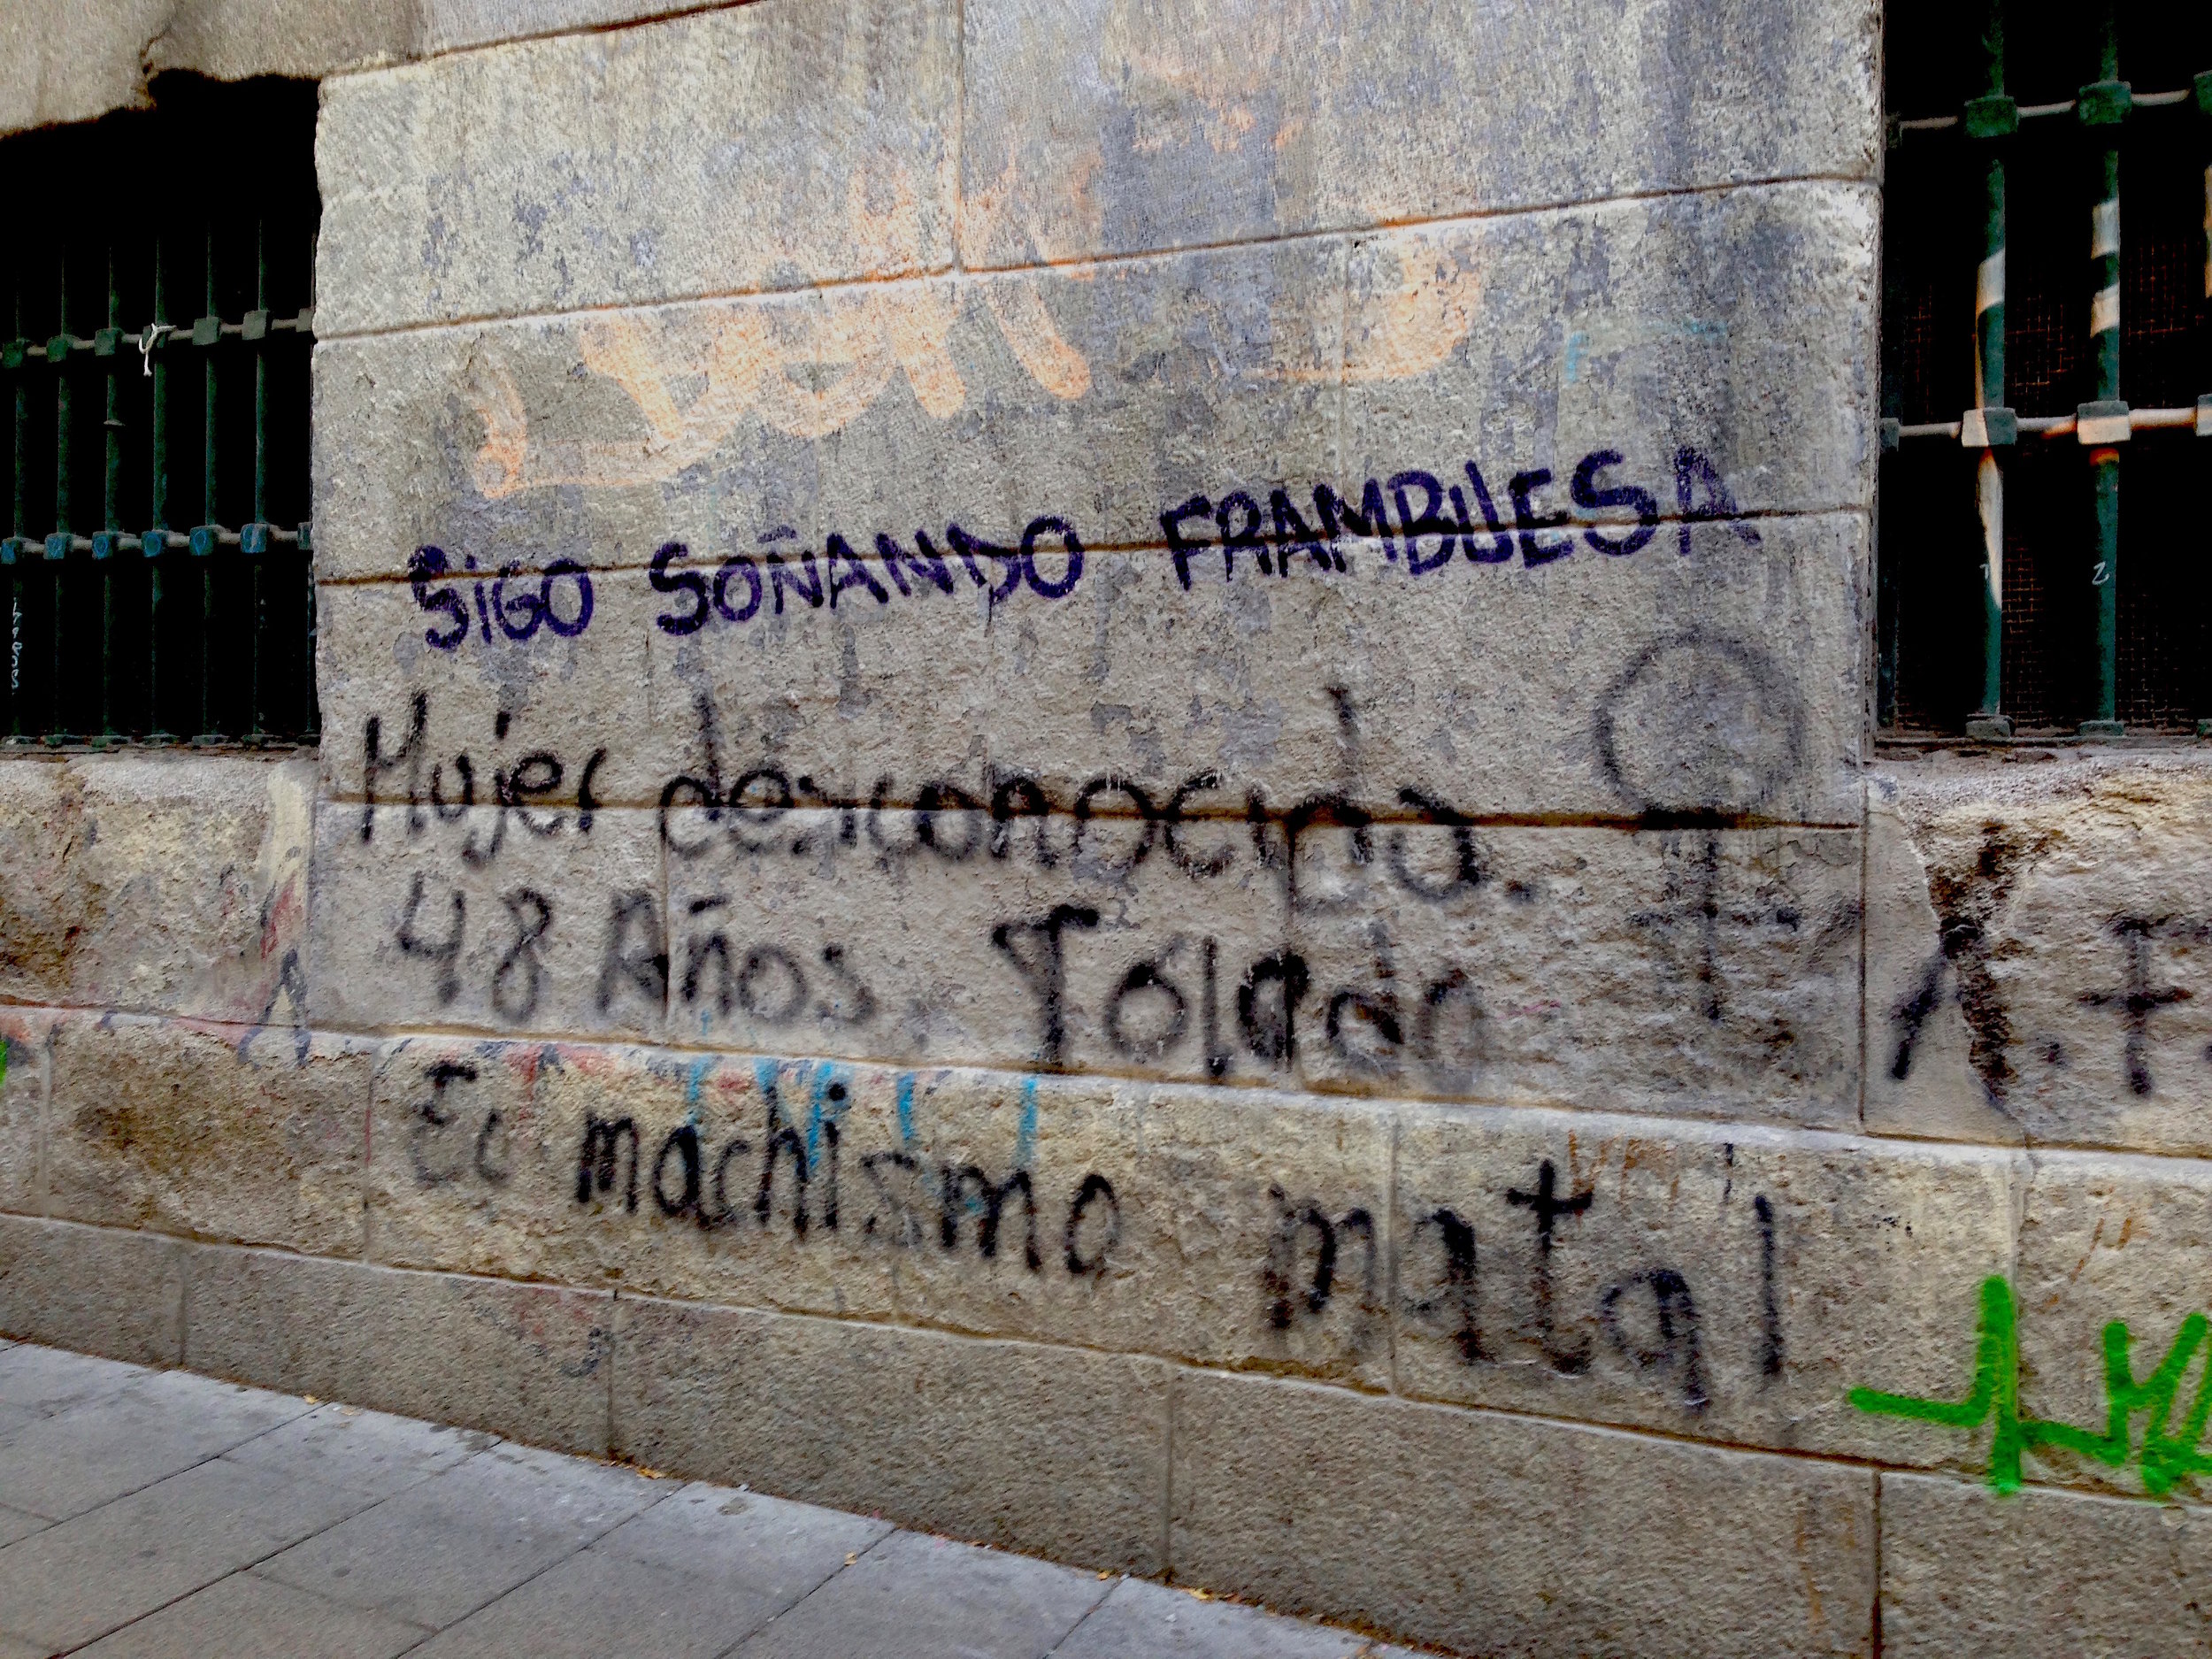 SIGO SOÑANDO FRAMBUESA
Mujer desconocida.
48 Años. Toledo
El machismo mata!